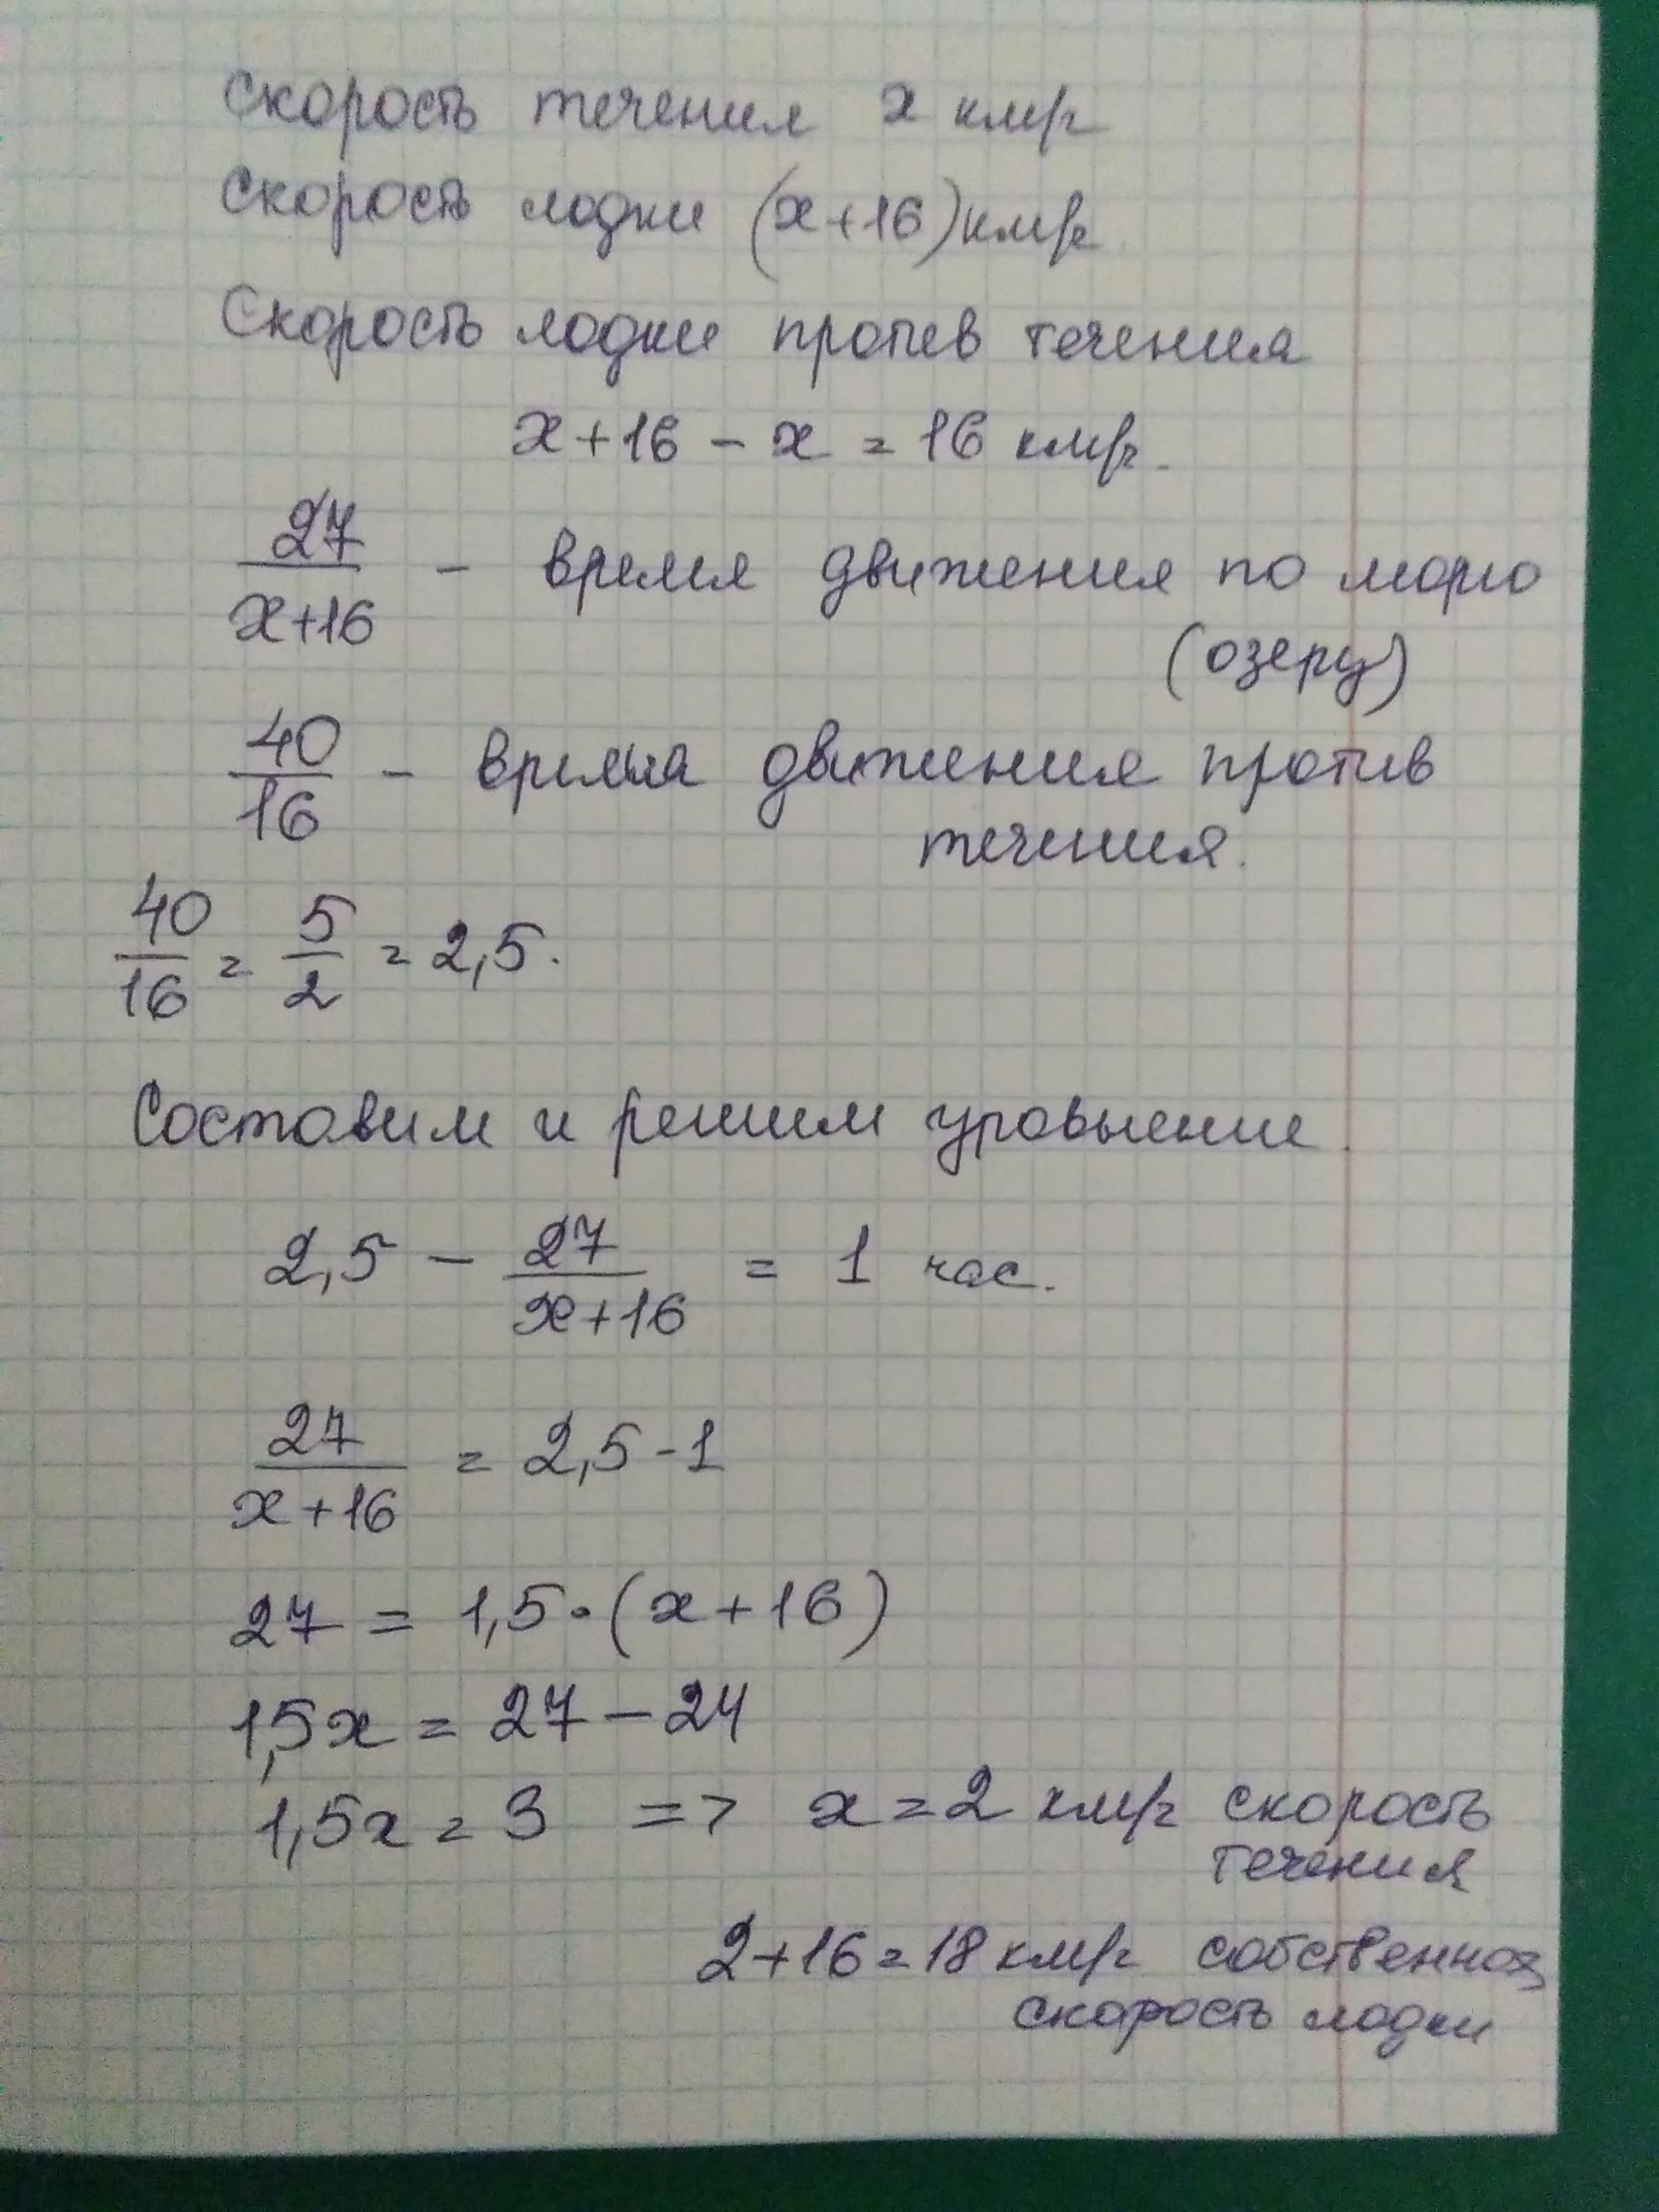 Скорость течения x км/ч
Скорость лодки (x+16) км/ч
Скорость лодки против течения
x+16 - x = 16 км/ч.
27/(x+16) - время движения по морю
(озеру)
40/16 - время движения против
течения.
40/16 = 5/2 = 2,5.
Составим и решим уравнение.
2,5 - 27/(x+16) = 1 час.
27/(x+16) = 2,5-1
27 = 1,5·(x+16)
1,5x = 27-24
1,5x = 3 => x=2 км/ч скорость
течения
2+16=18 км/ч собственная
скорость лодки